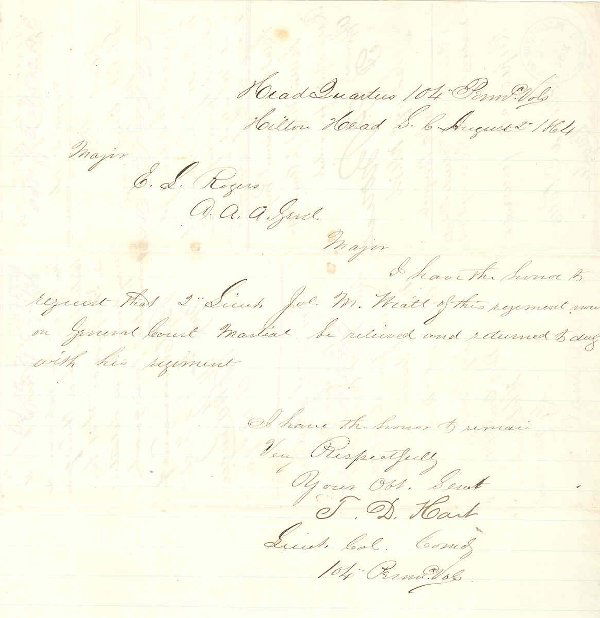 Head Quarters 104" Penna. Vols
Hilton Head S. C. August 2" 1864
Major
E. L. Rogers
A. A. A. Genl.
Major
I have the honor to
request that 2" Lieut. M. of this regiment now
on General Court Martial be relieved and returned to duty
with his regiment
I have the honor to remain
Very Respectfully
Your Obt. Servt
T. D. Hart
Lieut. Col. Comdg
104" Penna. Vols.